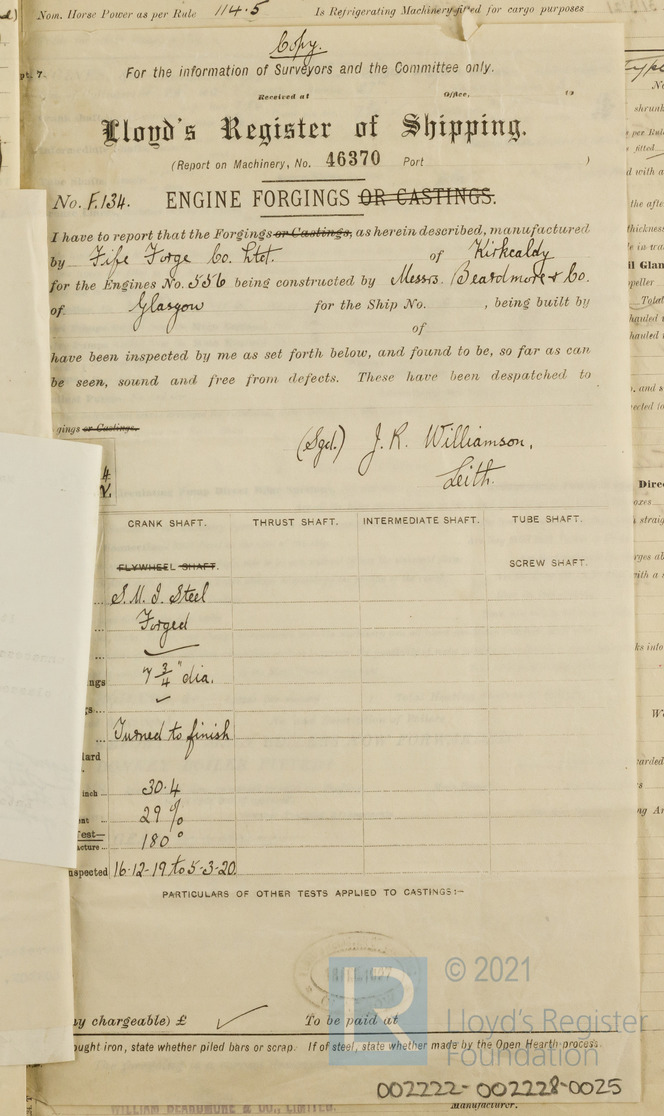 Nom. Horse Power as per Rule 114·5 Is Refrigerating Machinery fitted for cargo purposes
Copy.
pt. 7.
For the information of Surveyors and the Committee only.
Received at Office,
Lloyd's Register of Shipping.
(Report on Machinery, No. 46370 Port )
No. F.134. ENGINE FORGINGS OR CASTINGS.
I have to report that the Forgings or Castings, as herein described, manufactured
by Fife Forge Co. Ltd. of Kirkcaldy
for the Engines No. 556 being constructed by Messrs. Beardmore & Co.
of Glasgow for the Ship No. , being built by
of
have been inspected by me as set forth below, and found to be, so far as can
be seen, sound and free from defects. These have been despatched to
gings or Castings.
(Sgd.) J. R. Williamson,
Leith.
CRANK SHAFT. THRUST SHAFT. INTERMEDIATE SHAFT. TUBE SHAFT.
FLYWHEEL SHAFT. SCREW SHAFT.
S. M. I. Steel
Forged
ngs 7 3/4" dia.
Turned to finish
inch 30·4
29 %
Test—
acture 180°
nspected 16-12-19 to 5-3-20
PARTICULARS OF OTHER TESTS APPLIED TO CASTINGS:—
© 2021
Lloyd's Register
Foundation
ny chargeable) £ To be paid at
ought iron, state whether piled bars or scrap. If of steel, state whether made by the Open Hearth process.
002222-002228-0025
WILLIAM BEARDMORE & CO., LIMITED. Manufacturer.